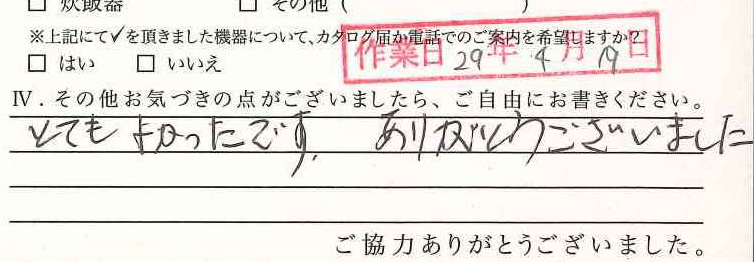 □ 炊飯器 □ その他（ ）
※上記にて✓を頂きました機器について、カタログ届か電話でのご案内を希望しますか？
□ はい □ いいえ
作業日 29年 4月 19日
Ⅳ．その他お気づきの点がございましたら、ご自由にお書きください。
とても よかったです。 ありがとうございました
ご協力ありがとうございました。